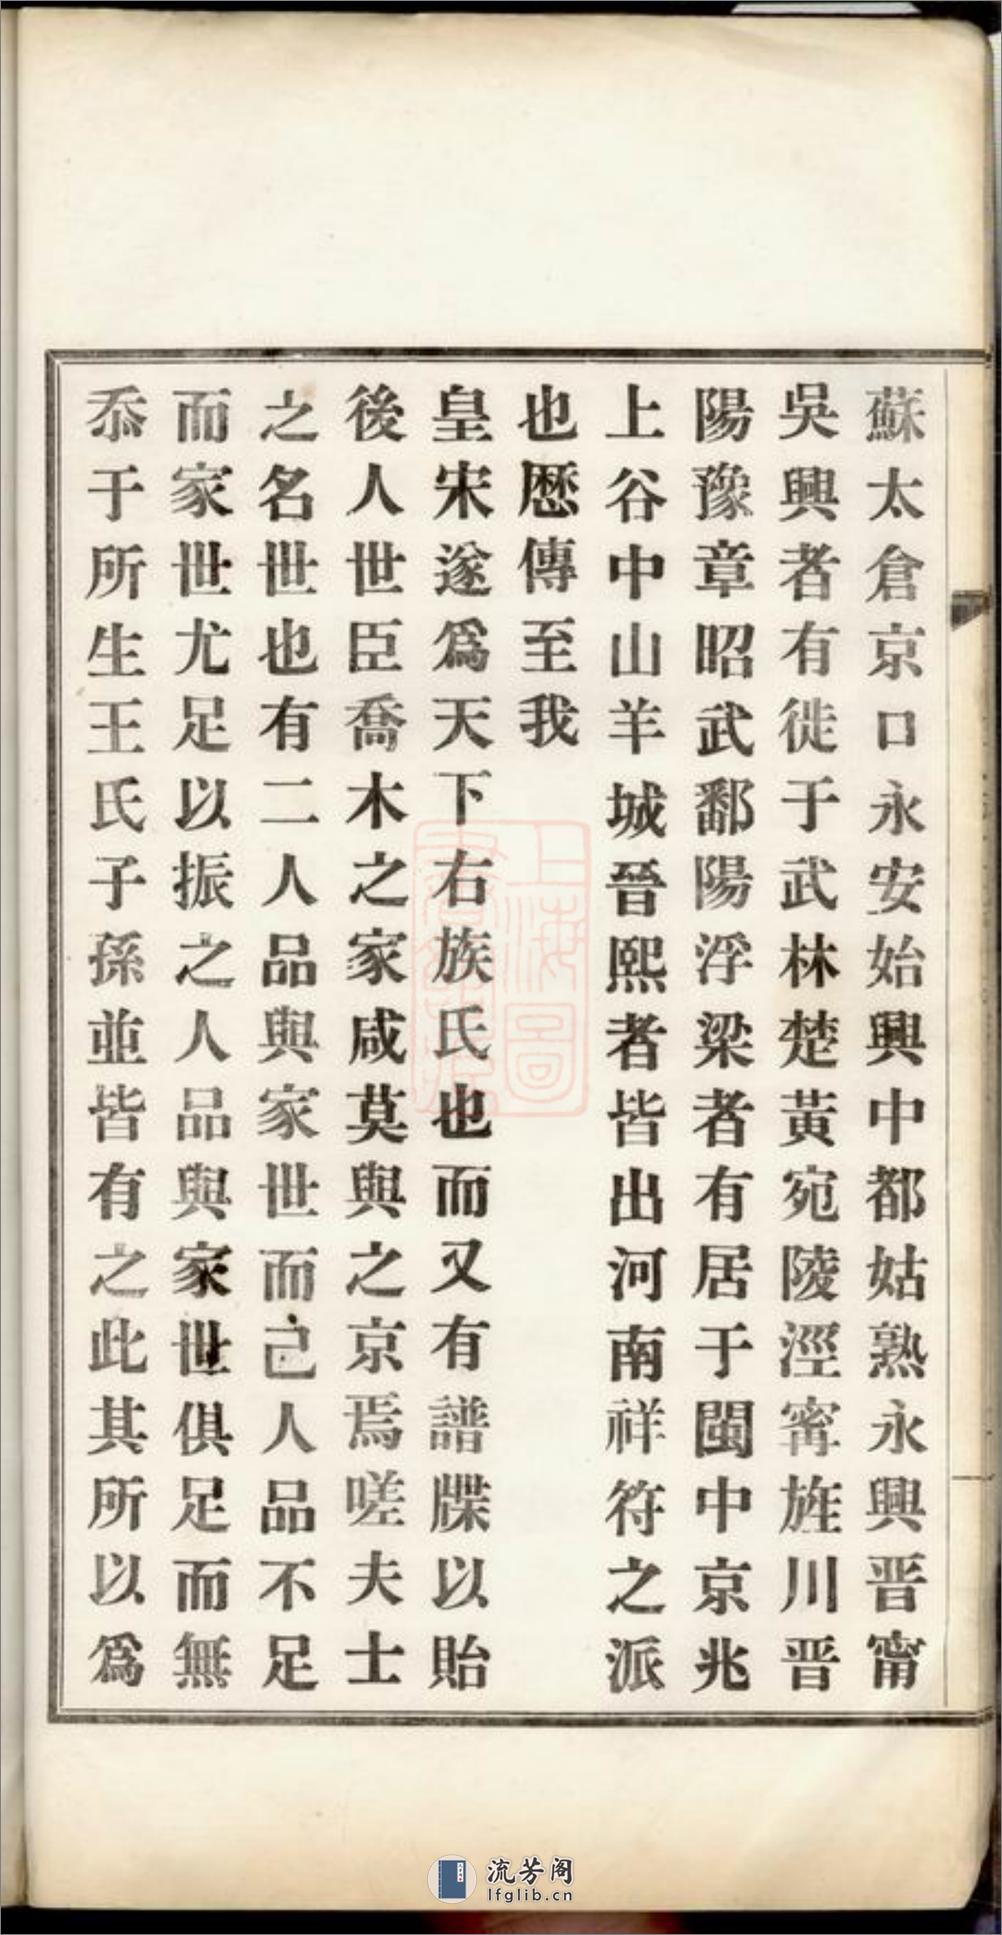 蘇太倉京口永安始興中都姑熟永興晋甯
吳興者有徙于武林楚黃宛陵涇甯旌川晋
陽豫章昭武鄱陽浮梁者有居于閩中京兆
上谷中山羊城晉熙者皆出河南祥符之派
也歷傳至我
皇宋遂爲天下右族氏也而又有譜牒以貽
後人世臣喬木之家咸莫與之京焉嗟夫士
之名世也有二人品與家世而己人品不足
而家世尤足以振之人品與家世俱足而無
忝于所生王氏子孫並皆有之此其所以爲
上海圖
書館藏
流芳阁
lfglib.cn